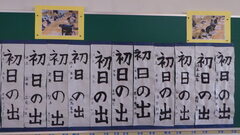 初日の出
初日の出
初日の出
初日の出
初日の出
初日の出
初日の出
初日の出
初日の出
初日の出
初日の出